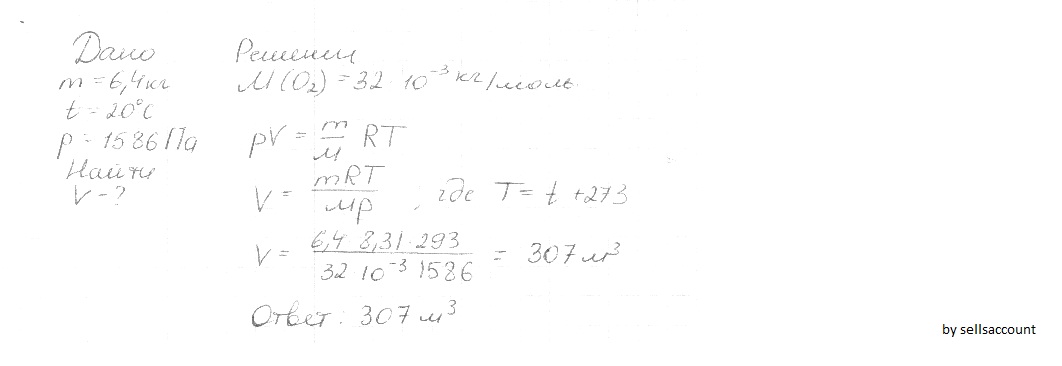 Дано
m = 6,4кг
t = 20°C
p = 1586 Па
Найти
V - ?
Решении
M (O₂) = 32 · 10⁻³ кг/моль
pV = m/M RT
V = mRT/Mp , где T = t + 273
V = 6,4 8,31 · 293 / 32 · 10⁻³ 1586 = 307 м³
Ответ: 307 м³
by sellsaccount